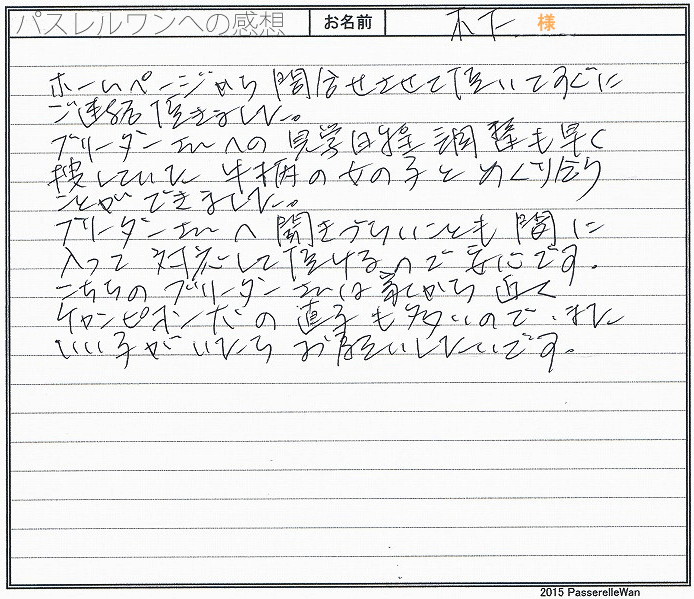 パスレルワンへの感想 お名前 木下 様
ホームページから問合せさせて頂いてすぐに
ご連絡頂きました。
ブリーダーさんへの見学日程調整も早く
捜していた牛柄の女の子とめぐり合う
ことができました。
ブリーダーさんへ聞きづらいことも間に
入って対応して頂けるので安心です。
こちらのブリーダーさんは家から近く
チャンピオン犬の直子も多いので、また
いい子がいたらお願いしたいです。
2015 PasserelleWan